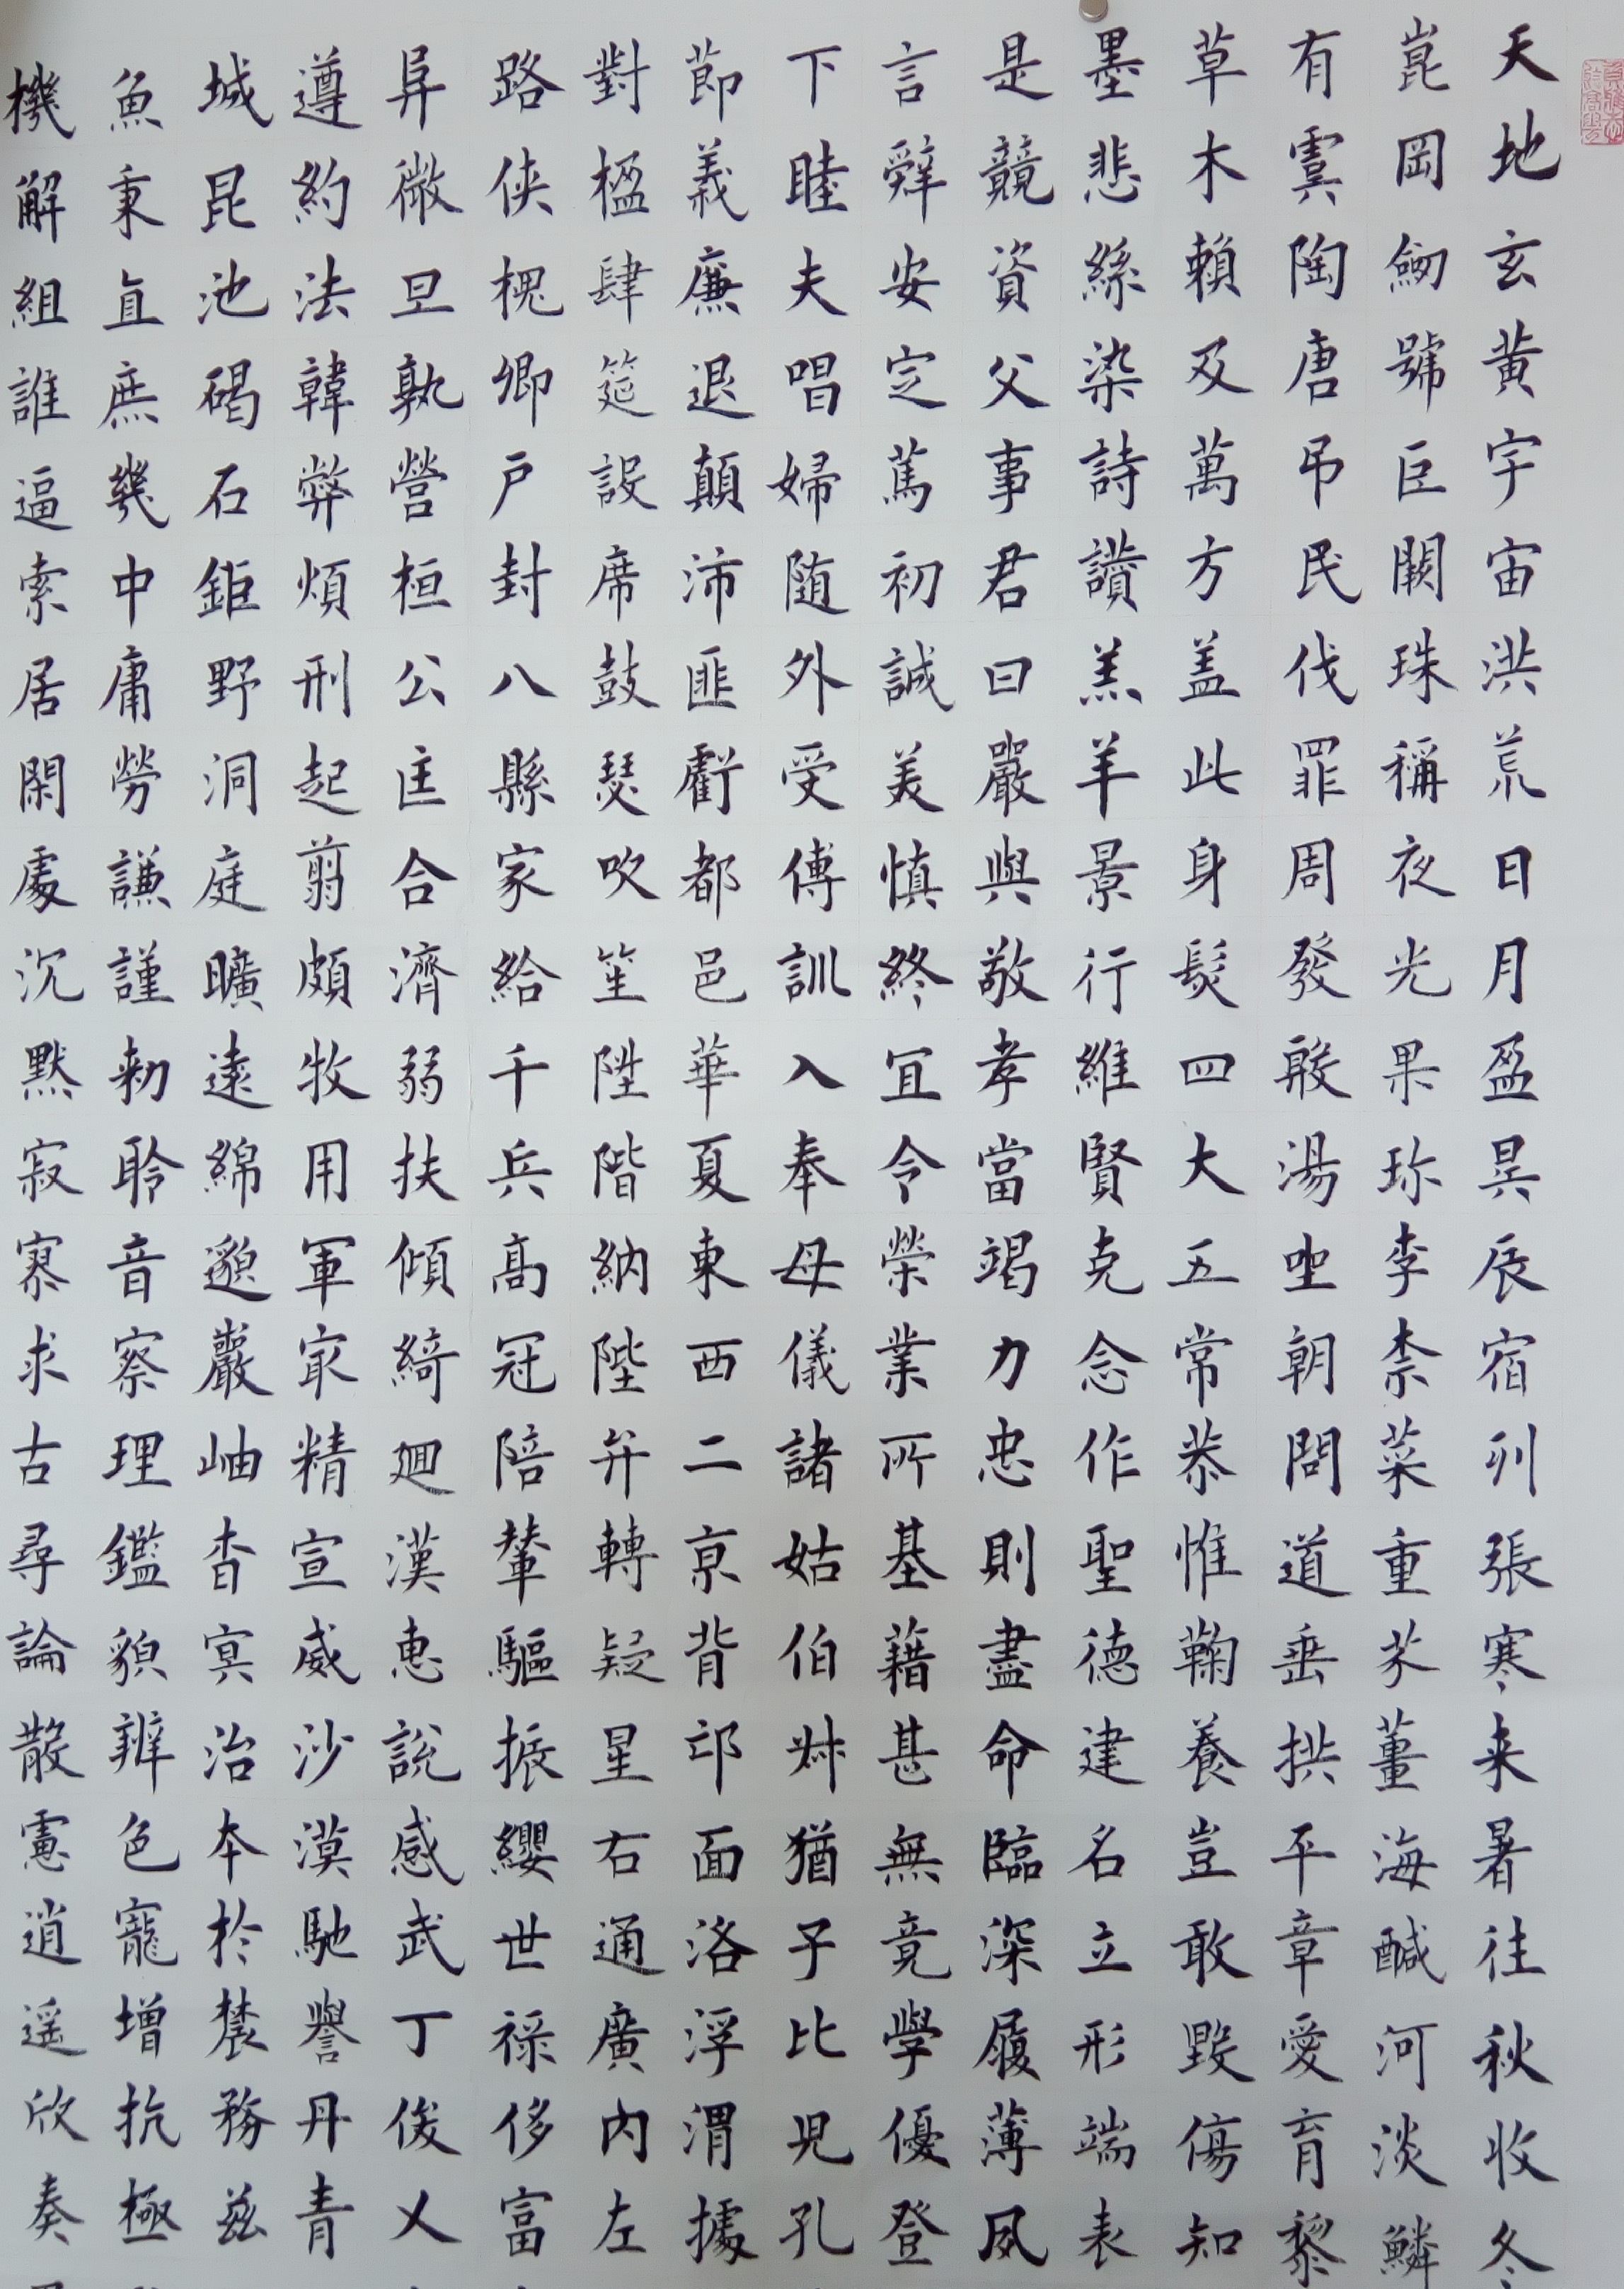 天地玄黃宇宙洪荒日月盈昃辰宿列張寒来暑往秋收冬
崑岡劒號巨闕珠稱夜光果珍李柰菜重芥薑海鹹河淡鱗
有虞陶唐吊民伐罪周發殷湯坐朝問道垂拱平章愛育黎
草木賴及萬方盖此身髮四大五常恭惟鞠養豈敢毀傷知
墨悲絲染詩讚羔羊景行維賢克念作聖德建名立形端表
是競資父事君曰嚴與敬孝當竭力忠則盡命臨深履薄夙
言辭安定篤初誠美慎終宜令榮業所基藉甚無竟學優登
下睦夫唱婦随外受傅訓入奉母儀諸姑伯叔猶子比兒孔
節義廉退顛沛匪虧都邑華夏東西二京背邙面洛浮渭據
對楹肆筵設席鼓瑟吹笙陞階納陛弁轉疑星右通廣內左
路俠槐卿户封八縣家給千兵高冠陪輦驅振纓世禄侈富
阜微旦孰營桓公匡合濟弱扶傾綺迴漢惠說感武丁俊乂
遵約法韓弊煩刑起翦頗牧用軍最精宣威沙漠馳譽丹青
城昆池碣石鉅野洞庭曠遠綿邈巖岫杳冥治本於農務兹
魚秉直庶幾中庸勞謙謹勑聆音察理鑑貌辨色寵增抗極
機解組誰逼索居閑處沉默寂寥求古尋論散慮逍遥欣奏